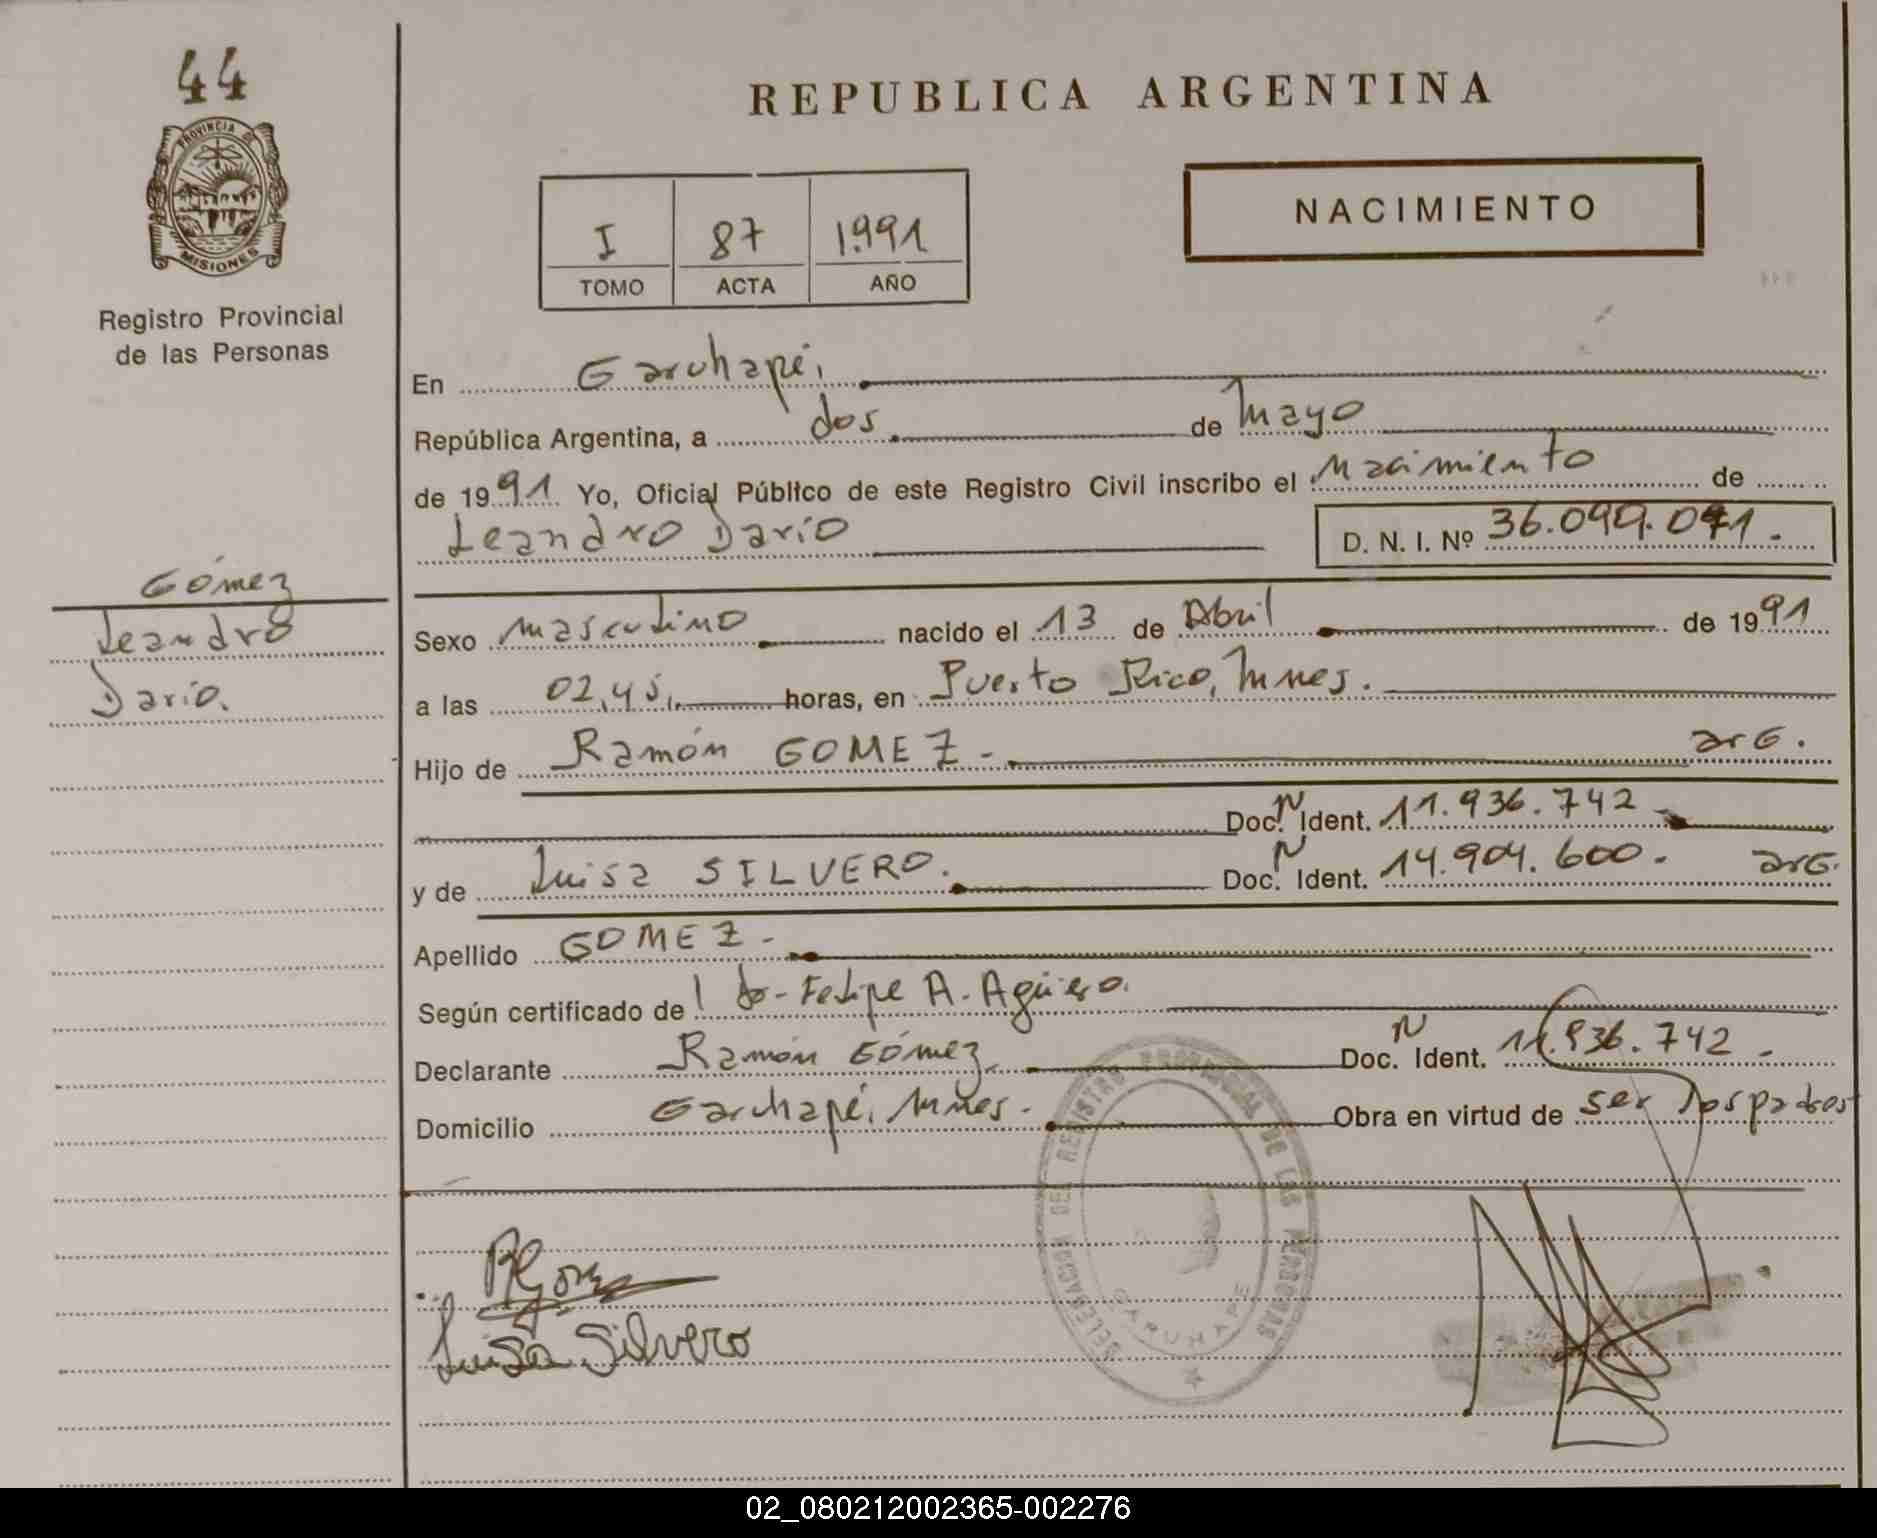 44
PROVINCIA DE
MISIONES
Registro Provincial
de las Personas
Gómez
Leandro
Darío.
REPUBLICA ARGENTINA
I 87 1.991
TOMO ACTA AÑO
NACIMIENTO
En Garuhapé,
República Argentina, a dos de Mayo
de 1991 Yo, Oficial Público de este Registro Civil inscribo el Nacimiento de
Leandro Darío D. N. I. Nº 36.099.071.
Sexo masculino nacido el 13 de Abril de 1991
a las 02,45, horas, en Puerto Rico, Mnes.
Hijo de Ramón GOMEZ - arG.
Doc. N Ident. 11.936.742
y de Luisa SILVERO. Doc. N Ident. 14.904.600. arG.
Apellido GOMEZ -
Según certificado de Felipe A. Agüero.
Declarante Ramón Gómez Doc. N Ident. 11.936.742 -
Domicilio Garuhapé, Mnes. Obra en virtud de ser los padres
RGomez
Luisa Silvero
DELEGACION DEL REGISTRO PROVINCIAL DE LAS PERSONAS
GARUHAPE
02_080212002365-002276